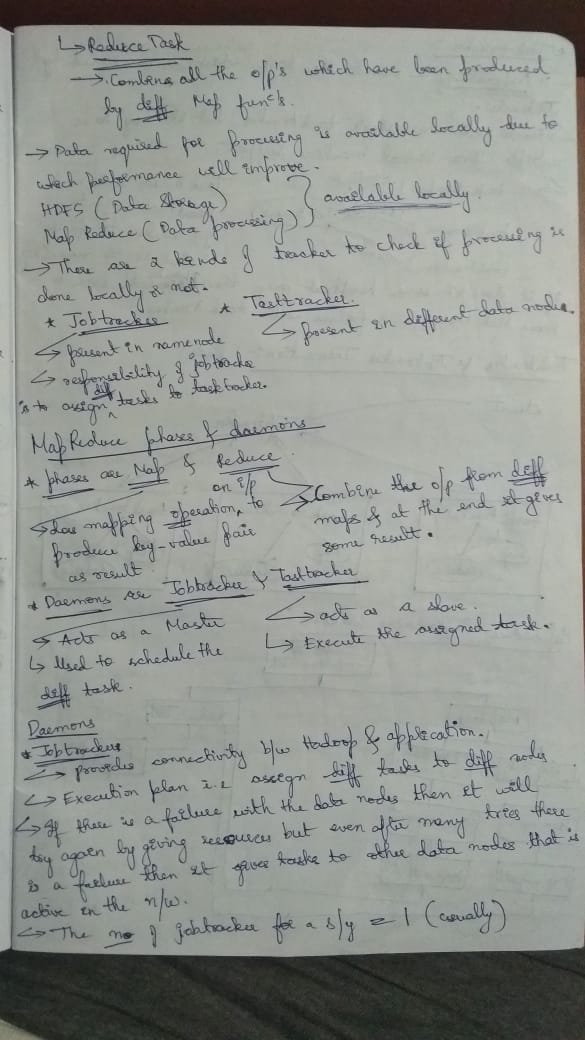 ↳ Reduce Task
→ Combines all the o/p's which have been produced
by diff Map func's.
→ Data required for processing is available locally due to
which performance will improve.
HDFS (Data Storage)
Map Reduce (Data processing) } available locally.
→ There are 2 kinds of tracker to check if processing is
done locally or not.
* Jobtracker
↳ present in namenode
↳ responsibility of jobtracker
is to assign diff tasks to tasktracker.
* Tasktracker.
↳ present in different data nodes.
MapReduce phases & daemons
* phases are Map & Reduce
↳ does mapping operation, on i/p to
produce key-value pair
as result
↳ Combine the o/p from diff
maps & at the end it gives
some result.
* Daemons are Jobtracker & Tasktracker
↳ Acts as a Master
↳ Used to schedule the
diff task.
↳ acts as a slave.
↳ Execute the assigned task.
Daemons
* Jobtracker
↳ provides connectivity b/w Hadoop & application.
↳ Execution plan i.e assign diff tasks to diff nodes
↳ If there is a failure with the data nodes then it will
try again by giving resources but even after many tries there
is a failure then it gives tasks to other data nodes that is
active in the n/w.
↳ The no of jobtracker for a s/y = 1 (usually)